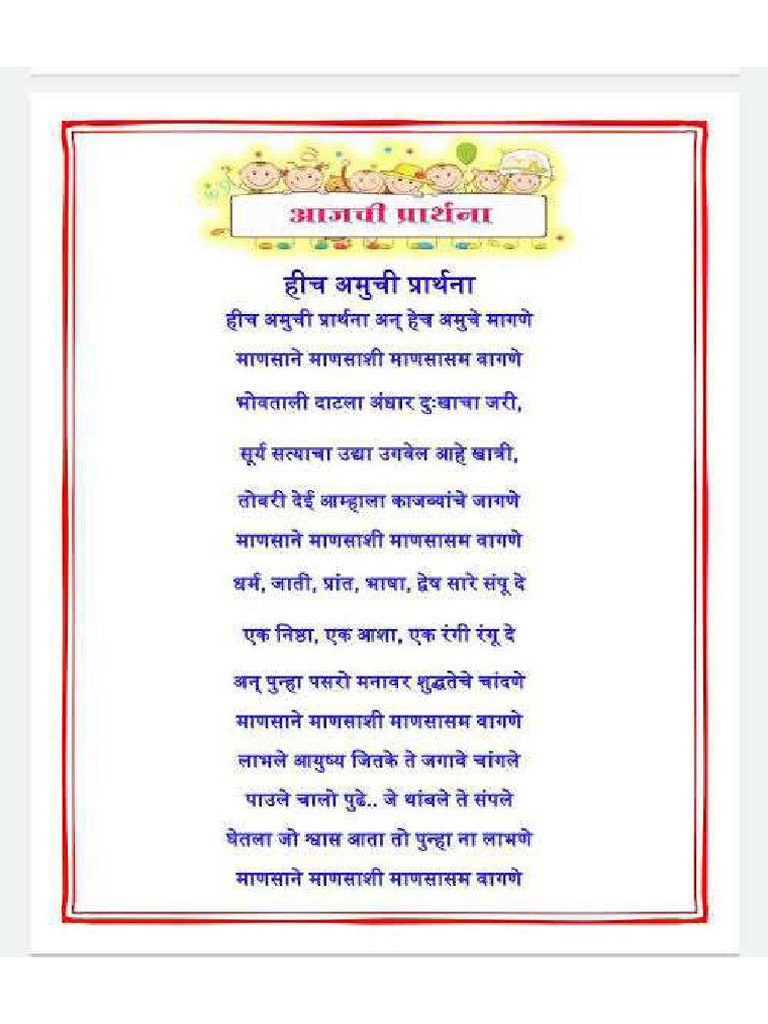 आजची प्रार्थना
हीच अमुची प्रार्थना
हीच अमुची प्रार्थना अन् हेच अमुचे मागणे
माणसाने माणसाशी माणसासम वागणे
भोवताली दाटला अंधार दुःखाचा जरी,
सूर्य सत्याचा उद्या उगवेल आहे खात्री,
तोवरी देई आम्हाला काजव्यांचे जागणे
माणसाने माणसाशी माणसासम वागणे
धर्म, जाती, प्रांत, भाषा, द्वेष सारे संपू दे
एक निष्ठा, एक आशा, एक रंगी रंगू दे
अन् पुन्हा पसरो मनावर शुद्धतेचे चांदणे
माणसाने माणसाशी माणसासम वागणे
लाभले आयुष्य जितके ते जगावे चांगले
पाउले चालो पुढे.. जे थांबले ते संपले
घेतला जो श्वास आता तो पुन्हा ना लाभणे
माणसाने माणसाशी माणसासम वागणे